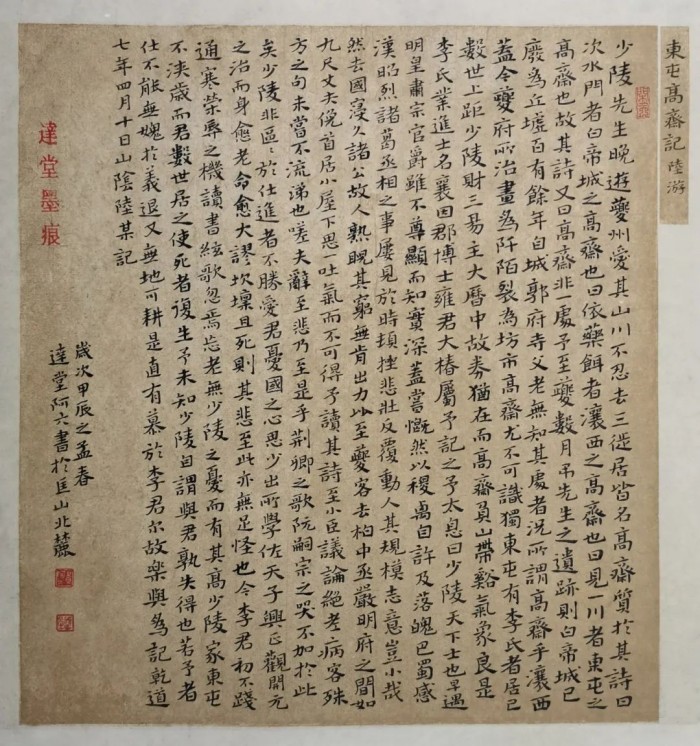 東屯高齋記 陸游
少陵先生晚遊夔州愛其山川不忍去三徙居皆名高齋質於其詩曰
次水門者白帝城之高齋也曰依藥餌者瀼西之高齋也曰見一川者東屯之
高齋也故其詩又曰高齋非一處予至夔數月吊先生之遺跡則白帝城已
廢爲丘墟百有餘年自城郭府寺父老無知其處者況所謂高齋乎瀼西
蓋今夔府所治畫爲阡陌裂爲坊市高齋尤不可識獨東屯有李氏者居已
數世上距少陵財三易主大曆中故券猶在而高齋負山帶谿氣象良是
李氏業進士名襄因郡博士雍君大椿屬予記之予太息曰少陵天下士也早遇
明皇肅宗官爵雖不尊顯而知實深蓋嘗慨然以稷卨自許及落魄巴蜀感
漢昭烈諸葛丞相之事屢見於時頓挫悲壯反覆動人其規模志意豈小哉
然去國寖久諸公故人熟睨其窮無肯出力比至夔客去柏中丞嚴明府之間如
九尺丈夫俛首居小屋下思一吐氣而不可得予讀其詩至小臣議論絕老病客殊
方之句未嘗不流涕也嗟夫辭至悲乃至是乎荊卿之歌阮嗣宗之哭不加於此
矣少陵非區區於仕進者不勝愛君憂國之心思少出所學佐天子興正觀開元
之治而身愈老命愈大謬坎壈且死則其悲至此亦無足怪也今李君初不踐
通塞榮辱之機讀書絃歌忽焉忘老無少陵之憂而有其高少陵家東屯
不浹歲而君數世居之使死者復生予未知少陵自謂與君孰失得也若予者
仕不能無愧於義退又無地可耕是直有慕於李君尔故樂與爲記乾道
七年四月十日山陰陸某記
歲次甲辰之孟春
達堂阿六書於匡山北麓
達堂墨痕